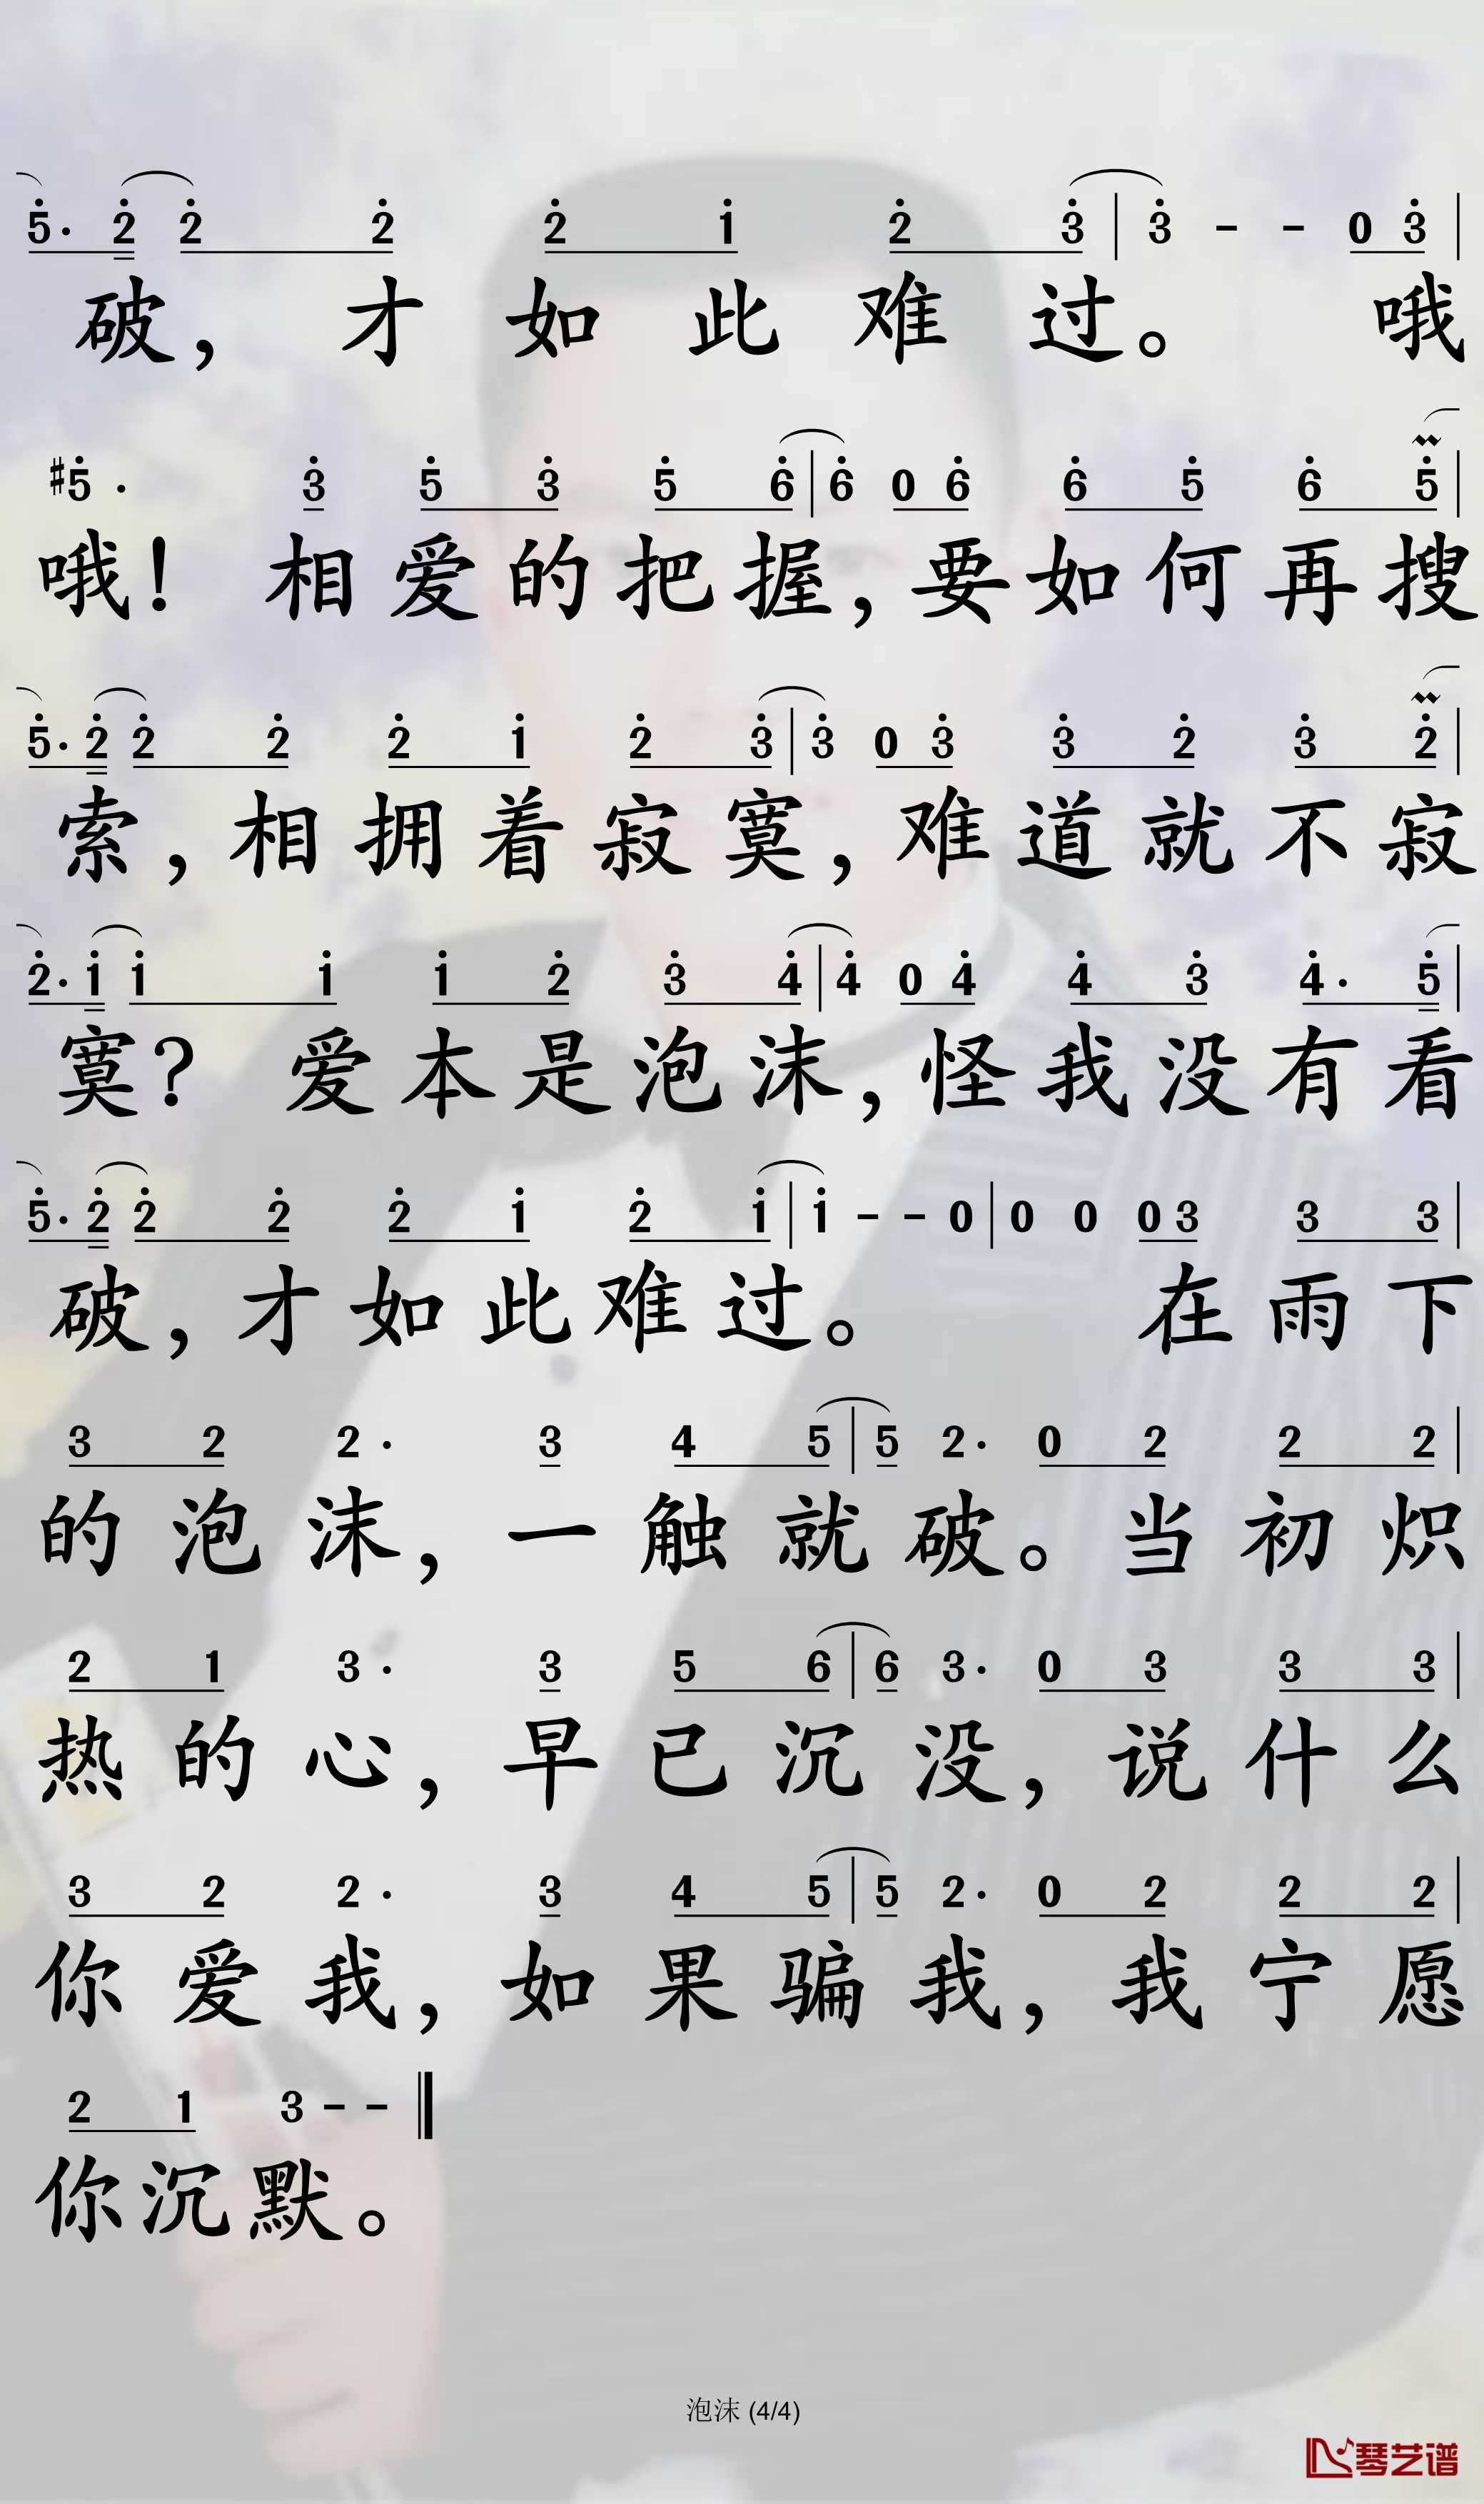 5· 2 2 2 2 1 2 3 | 3 - - 0 3 |
破，才如此难过。 哦
#5· 3 5 3 5 6 | 6 0 6 6 5 6 5 |
哦！ 相爱的把握，要如何再搜
5· 2 2 2 2 1 2 3 | 3 0 3 3 2 3 2 |
索，相拥着寂寞，难道就不寂
2· 1 1 1 1 2 3 4 | 4 0 4 4 3 4· 5 |
寞？ 爱本是泡沫，怪我没有看
5· 2 2 2 2 1 2 1 | 1 - - 0 | 0 0 0 3 3 3 |
破，才如此难过。 在雨下
3 2 2· 3 4 5 | 5 2· 0 2 2 2 |
的泡沫，一触就破。当初炽
2 1 3· 3 5 6 | 6 3· 0 3 3 3 |
热的心，早已沉没，说什么
3 2 2· 3 4 5 | 5 2· 0 2 2 2 |
你爱我，如果骗我，我宁愿
2 1 3 - - ‖
你沉默。
泡沫 (4/4)
琴艺谱